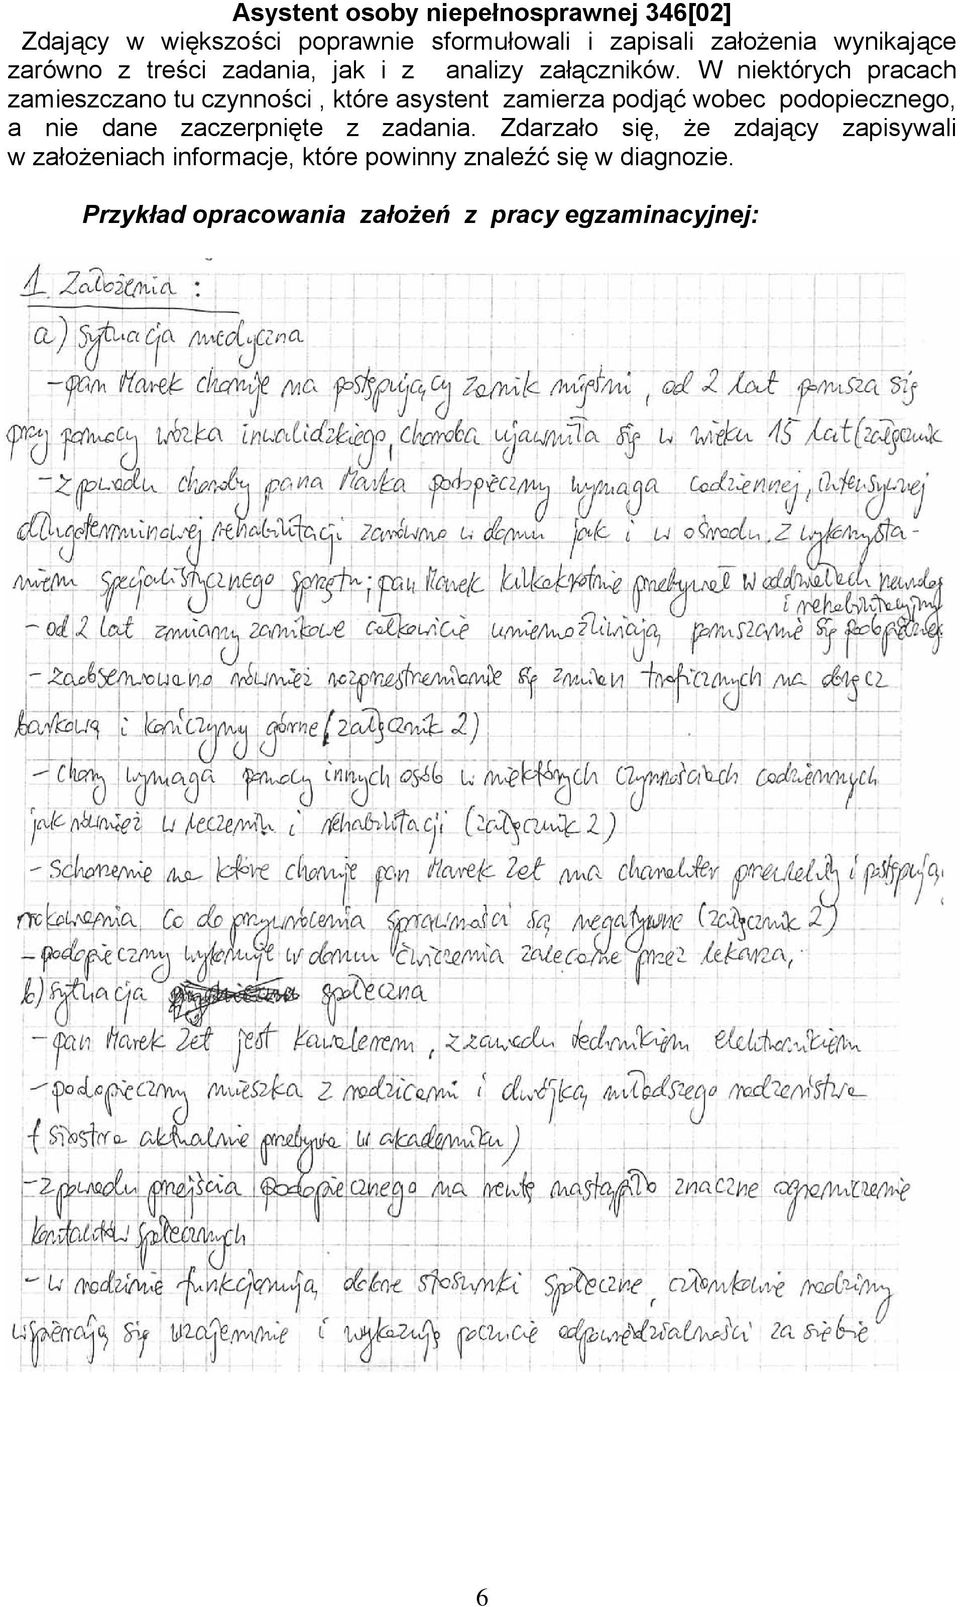 Asystent osoby niepełnosprawnej 346[02]
Zdający w większości poprawnie sformułowali i zapisali założenia wynikające
zarówno z treści zadania, jak i z analizy załączników. W niektórych pracach
zamieszczano tu czynności , które asystent zamierza podjąć wobec podopiecznego,
a nie dane zaczerpnięte z zadania. Zdarzało się, że zdający zapisywali
w założeniach informacje, które powinny znaleźć się w diagnozie.
Przykład opracowania założeń z pracy egzaminacyjnej:
1. Założenia :
a) sytuacja medyczna
- pan Marek choruje na postępujący zanik mięśni, od 2 lat porusza się
przy pomocy wózka inwalidzkiego, choroba ujawniła się w wieku 15 lat (załącznik
- z powodu choroby pana Marka podopieczny wymaga codziennej, intensywnej
długoterminowej rehabilitacji zarówno w domu jak i w ośrodku. z wykorzysta-
niem specjalistycznego sprzętu; pan Marek kilkakrotnie przebywał w oddziałach neurolog
i rehabilitacyjnym
- od 2 lat zmiany zanikowe całkowicie uniemożliwiają poruszanie się
- zaobserwowano również rozprzestrzenianie się zmian troficznych na obręcz
barkową i kończyny górne (załącznik 2)
- Chory wymaga pomocy innych osób w niektórych czynnościach codziennych
jak również w leczeniu i rehabilitacji (załącznik 2)
- Schorzenie na które choruje pan Marek Zet ma charakter przewlekły i postępują,
rokowania co do przywrócenia sprawności są negatywne (załącznik 2)
- podopieczny wykonuje w domu ćwiczenia zalecone przez lekarza,
b) sytuacja społeczna
- pan Marek Zet jest kawalerem, z zawodu technikiem elektronikiem
- podopieczny mieszka z rodzicami i dwójką młodszego rodzeństwa
(siostra aktualnie przebywa w akademiku)
- z powodu przejścia podopiecznego na rentę nastąpiło znaczne ograniczenie
kontaktów społecznych
- w rodzinie funkcjonują dobre stosunki społeczne, członkowie rodziny
wspierają się wzajemnie i wykazują poczucie odpowiedzialności za siebie
6